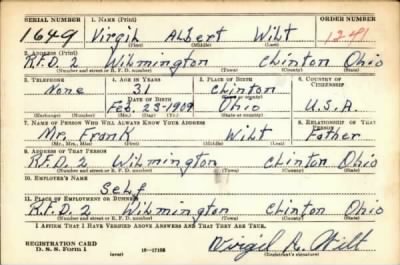 SERIAL NUMBER 1. NAME (Print) ORDER NUMBER
1649 Virgil Albert Wilt 1241
(First) (Middle) (Last)
2. ADDRESS (Print)
R.F.D. 2 Wilmington Clinton Ohio
(Number and street or R. F. D. number) (Town) (County) (State)
3. TELEPHONE 4. AGE IN YEARS 5. PLACE OF BIRTH 6. COUNTRY OF CITIZENSHIP
None 31 Clinton
DATE OF BIRTH (Town or county)
Feb. 23-1909 Ohio U.S.A.
(Exchange) (Number) (Mo.) (Day) (Yr.) (State or country)
7. NAME OF PERSON WHO WILL ALWAYS KNOW YOUR ADDRESS 8. RELATIONSHIP OF THAT PERSON
Mr. Frank Wilt Father
(Mr., Mrs., Miss) (First) (Middle) (Last)
9. ADDRESS OF THAT PERSON
R.F.D. 2 Wilmington Clinton Ohio
(Number and street or R. F. D. number) (Town) (County) (State)
10. EMPLOYER'S NAME
Self
11. PLACE OF EMPLOYMENT OR BUSINESS
R.F.D. 2 Wilmington Clinton Ohio
(Number and street or R. F. D. number) (Town) (County) (State)
I AFFIRM THAT I HAVE VERIFIED ABOVE ANSWERS AND THAT THEY ARE TRUE.
REGISTRATION CARD
D. S. S. Form 1
(over) Virgil A. Wilt
(Registrant's signature)